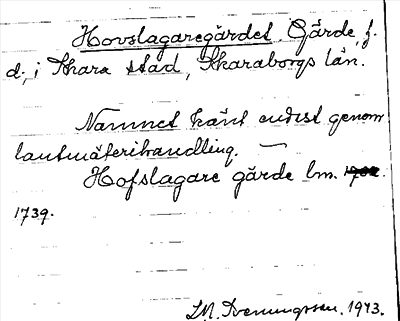 Hovslagaregärdet. Gärde, f.
d., i Skara stad, Skaraborgs län.
Namnet känt endast genom
lantmäterihandling. —
Hofslagare gärde lm.
1739.
1943.